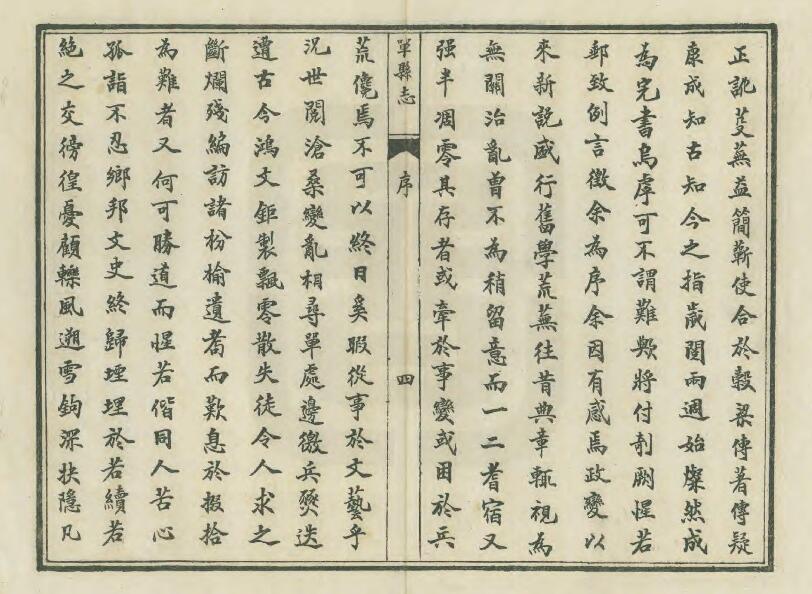 正訛芟蕪益簡蘄使合於穀梁傳著傳疑
康成知古知今之指歲閏兩週始燦然成
為完書烏虖可不謂難歟將付剞劂惺若
郵致例言徵余為序余因有感焉政變以
來新說盛行舊學荒蕪往昔典章輒視為
無關治亂曾不為稍留意而一二耆宿又
强半凋零其存者或牽於事變或困於兵
單縣志
序
四
荒儳焉不可以終日奚暇從事於文藝乎
況世閱滄桑變亂相尋單處邊徼兵燹迭
遭古今鴻文鉅製飄零散失徒令人求之
斷爛殘編訪諸枌榆遺耆而歎息於掇拾
為難者又何可勝道而惺若偕同人苦心
孤詣不忍鄉邦文史終歸堙埋於若續若
絕之交徬徨憂顧轢風遡雪鉤深抉隱凡